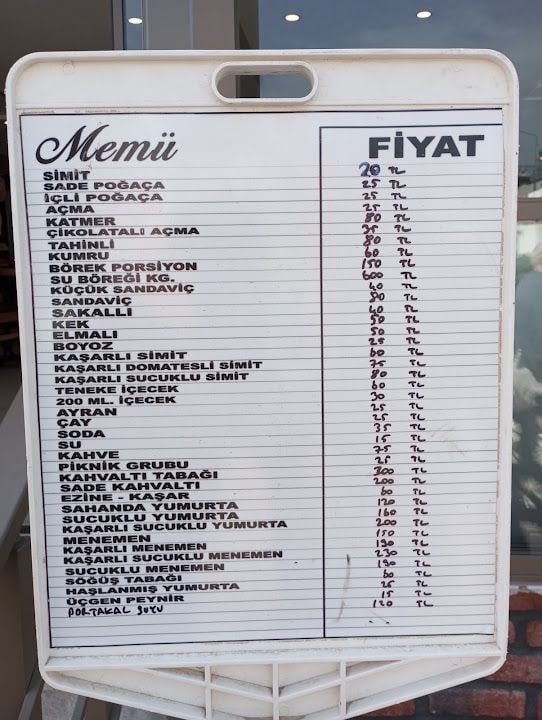 Menü FİYAT
SİMİT 20 TL
SADE POĞAÇA 25 TL
İÇLİ POĞAÇA 25 TL
AÇMA 25 TL
KATMER 80 TL
ÇİKOLATALI AÇMA 35 TL
TAHİNLİ 80 TL
KUMRU 60 TL
BÖREK PORSİYON 150 TL
SU BÖREĞİ KG. 600 TL
KÜÇÜK SANDAVİÇ 40 TL
SANDAVİÇ 80 TL
SAKALLI 40 TL
KEK 50 TL
ELMALI 50 TL
BOYOZ 25 TL
KAŞARLI SİMİT 60 TL
KAŞARLI DOMATESLİ SİMİT 75 TL
KAŞARLI SUCUKLU SİMİT 80 TL
TENEKE İÇECEK 60 TL
200 ML. İÇECEK 30 TL
AYRAN 25 TL
ÇAY 25 TL
SODA 35 TL
SU 15 TL
KAHVE 75 TL
PİKNİK GRUBU 25 TL
KAHVALTI TABAĞI 300 TL
SADE KAHVALTI 200 TL
EZİNE - KAŞAR 60 TL
SAHANDA YUMURTA 120 TL
SUCUKLU YUMURTA 160 TL
KAŞARLI SUCUKLU YUMURTA 200 TL
MENEMEN 150 TL
KAŞARLI MENEMEN 190 TL
KAŞARLI SUCUKLU MENEMEN 230 TL
SUCUKLU MENEMEN 190 TL
SÖĞÜŞ TABAĞI 60 TL
HAŞLANMIŞ YUMURTA 25 TL
ÜÇGEN PEYNİR 15 TL
PORTAKAL SUYU 120 TL